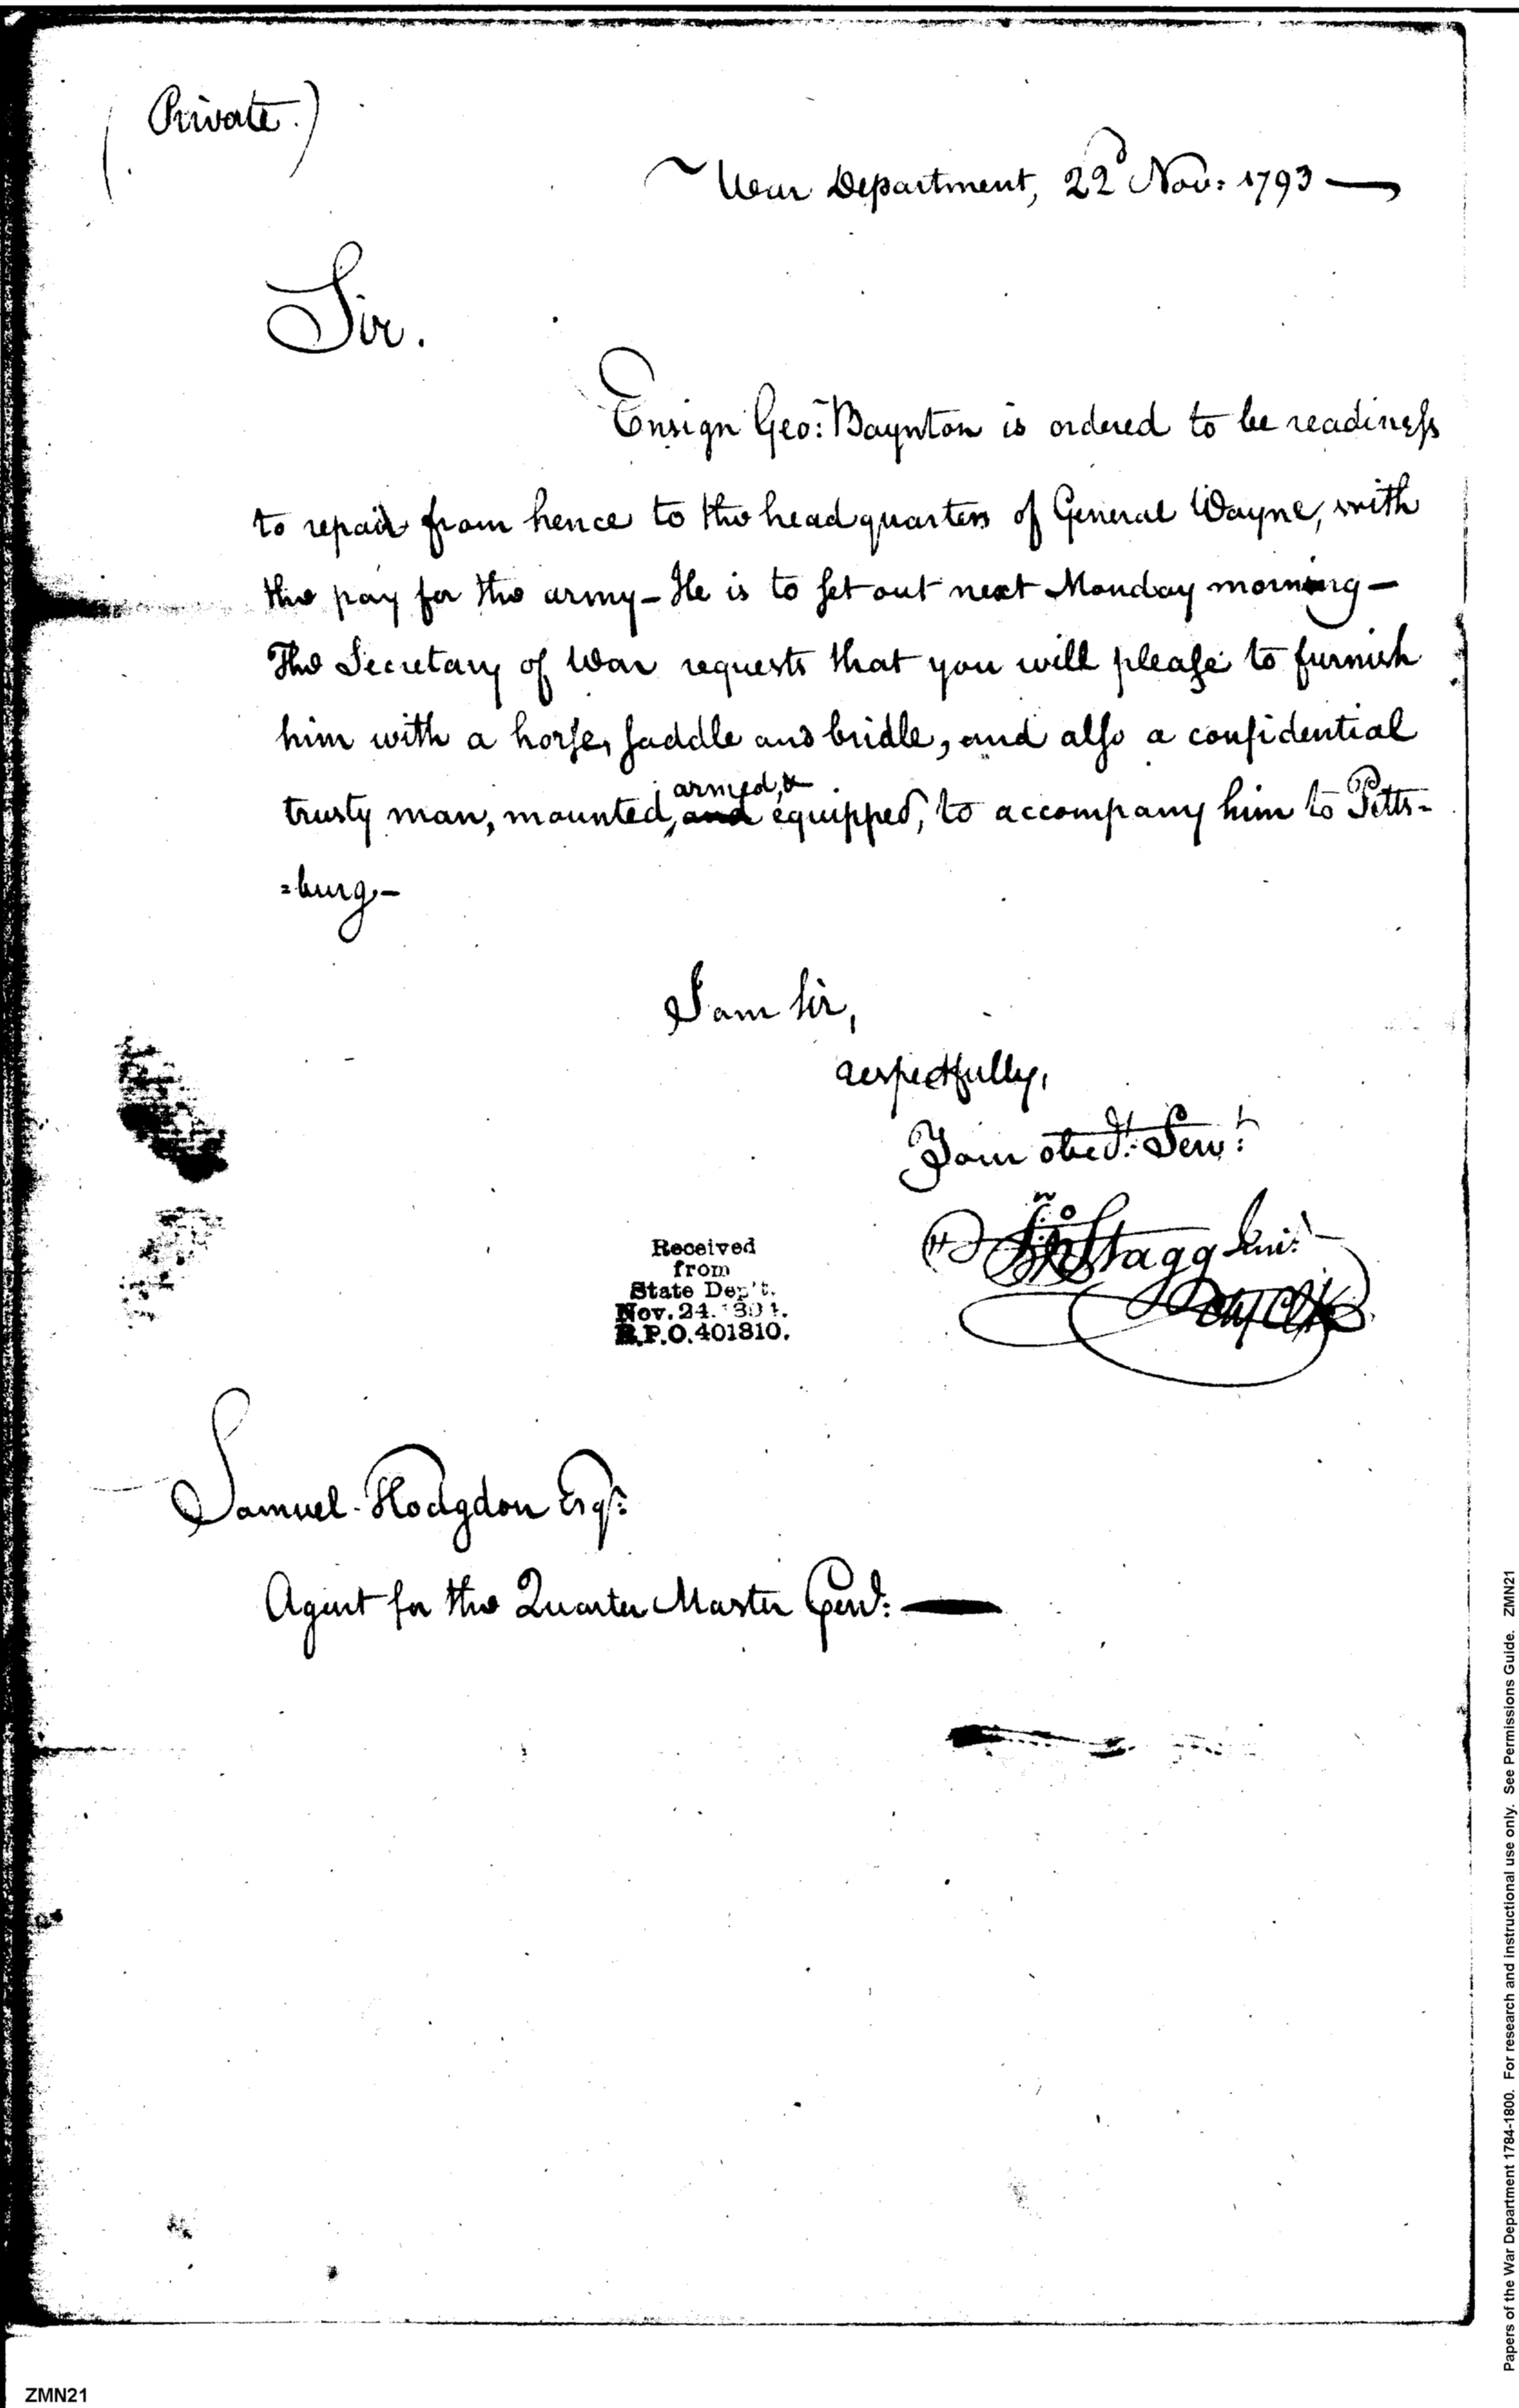 (Private.)
War Department, 22d Nov: 1793 —
Sir.
Ensign Geo: Baynton is ordered to be readiness
to repair from hence to the head quarters of General Wayne, with
the pay for the army – He is to set out next Monday morning –
The Secretary of War requests that you will please to furnish
him with a horse, saddle and bridle, and also a confidential
armed, &
trusty man, mounted, and equipped, to accompany him to Pitts=
=burg –
I am Sir,
respectfully,
Your obedt: Servt:
Jno Stagg Junr:
Received
from
State Dep't.
Nov. 24. 1894.
R.P.O. 401810.
Samuel Hodgdon Esqr:
Agent for the Quarter Master Genl: —
Papers of the War Department 1784-1800. For research and instructional use only. See Permissions Guide. ZMN21
ZMN21